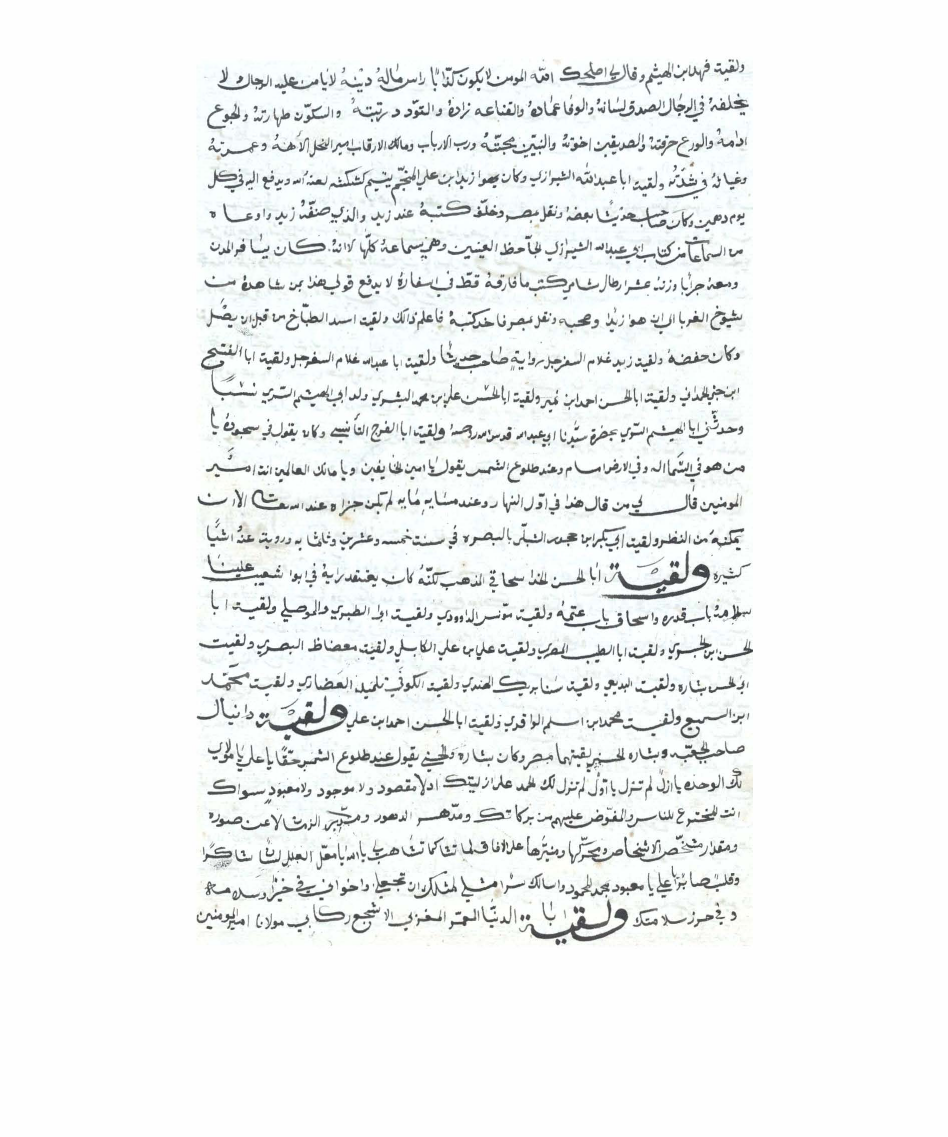 ولقيت فهد ابن الهيثم وقال لي اصلحك الله المومن لا يكون كذابا راس ماله دينه لا يامن عليه الرجال ولا
يخلفه في الرجال الصدق لسانه والوفا عماده والقناعه زاده والتودد رتبته والسكون طهارته والجوع
ادامه والورع حرفته والصديقين اخوته والنبيين محجته ورب الارباب ومالك الارقاب امير النحل الاهه وعمدته
وغياثه في شدته ولقيت ابا عبد الله الشيرازي وكان يهوا زيد ابن علي المنجم لعنه الله ويدفع اليه في كل
يوم درهمين وكان صاحب حديثا ونقل بمصر وخلف كتبه عند زيد والذي صنفه زيد وادعاه
من السماعات من كتاب ابي عبدالله الشيرازي لجاحظ العينين وهي سماعة كلها لانه كان يسافر المدن
ومعه جرابا وزنه عشر ارطال شامي كتب ما فارقه قط في اسفاره لا يدفع قولي هذا من شاهده من
شيوخ الغربا الي ان هوا زيدا وصحبه ونقل بمصر فاخذ كتبه فاعلم ذالك ولقيت اسد الطباخ من قبل ان يضل
وكان حفضه ولقيت زيد غلام السفرجل رواية صاحب حديثا ولقيت ابا عبدالله غلام السفرجل ولقيت ابا الفتيح
ابن حي الحداني ولقيت ابا الحسن احمد ابن نمير ولقيت ابا الحسن علي بن محمد البشري ولد ابي الهيثم السري نسبا
وحدثني ابا الهيثم السري بحضرة سيدنا ابي عبدالله قدس الله روحه ولقيت ابا الفرج وكان يقول في سجوده يا
من هو في السما اله وفي الارض امام وعند طلوع الشمس يقول يا امين الخايفين ويا مالك العالمين انت امير
المومنين قال لي من قال هذا في اول النهار وعند مسايه مايه لم يكن جزاه عند الله تعالى الا ان
يمكنه من النظر ولقيت ابي بكر ابن الشبلي بالبصره في سنت خمسه وعشرين وثلثمايه ورويت عنه اشيا
كثيره ولقيت ابا الحسن اسحاقي الذهب لكنه كان يعتقد راية في ابوا شعيب علينا
سلامه باب قدره واسحاق باب عتمه ولقيت مونس الداوودي ولقيت ابي الطبري والموصلي ولقيت ابا
الحسن ابن الجبري ولقيت ابا الطيب المصري ولقيت علي بن علي الكابلي ولقيت معضاظ البصري ولقيت
ابي الحسن بشاره ولقيت البديعي ولقيت الهندي ولقيت الكوفي تلميذ الغضاري ولقيت محمد
ابن السميع ولقيت محمد ابن اسلم الواقدي ولقيت ابا الحسن احمد ابن علي ولقيت دانيال
صاحب وبشاره لقيتهما بمصر وكان بشاره يقول عند طلوع الشمس حقا يا علي يا مولاي
لك الوحده يا ازل لم تنزل يا اول لم تنزل لك الحمد على ازليتك اذ لا مقصود ولا موجود ولا معبود سواك
انت المخترع للناس والمفوض عليهم من بركاتك ومدهر الدهور ومدبر الزمان لا عن صوره
ومقدار مشخص الاشخاص ومحركها ومنيرها على الافاق لما تشا كما تشا هب لي يا الله يا معل العلل لسانا شاكرا
وقلب صابرا يا علي يا معبود محمد المحمود واسالك ان تجعلني واخواني في خزاوسلامه
وفي حرز سلامتك ولقيت ابا الدنيا المعمر المغربي الاشجع ركابي مولانا امير المومنين